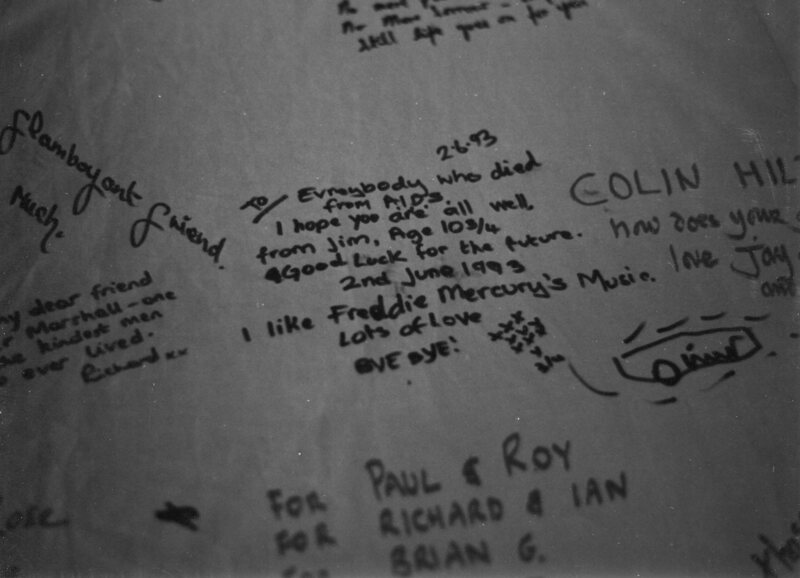 still life goes on for you
Flamboyant
friend.
Much.
2.6.93
To Evreybody who died
from A.I.D.S.
I hope you are all well.
from Jim, Age 10 3/4
Good Luck for the future.
2nd June 1993
I like Freddie Mercury's Music.
Lots of love
BYE BYE!
COLIN HIL
how does your
love Jay
and
my dear friend
Marshall - one
kindest men
ever lived.
Richard xx
FOR PAUL & ROY
FOR RICHARD & IAN
BRIAN G.